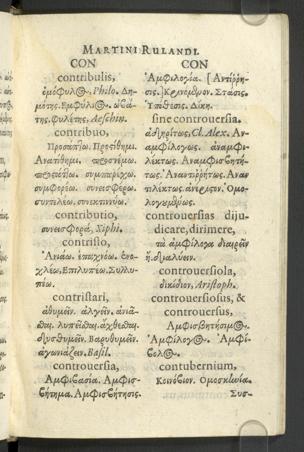 MARTINI RULANDI.
CON
contribulis,
ὁμόφυλος. Philo. Δη-
μότης. Εμφύλιος.
της. φυλέτης, Aeschin.
contribuo,
Προσάπτω. Προστίθημι.
Ανατίθημι.
συμφέρω. συνεισφέρω.
συντελέω. συνεκτιννύω.
contributio,
συνεισφορά, Xiphi.
contristo,
Ανιάω.
χλέω. Επιλυπέω. Συλλυ-
πέω.
contristari,
ἀθυμεῖν. ἀλγεῖν. ἀνιᾶ-
δυσθυμεῖν. Βαρυθυμεῖν.
ἀγωνιάζειν. Basil.
controuersia,
Αμφιβασία. Αμφισ-
βήτημα. Αμφισβήτησις.
CON
Ἀμφιλογία. [Αντίρρη-
σις.] Στάσις.
Ὑπόθεσις. Δίκη.
sine controuersia.
ἀδηρίτως. Cl. Alex. Αν-
αμφιλόγως. ἀναμφι-
λέκτως. Αναμφισβητή-
τως. Αναντιρρήτως. Αναν
τιλέκτως. Ὁμο-
λογουμένως.
controuersias diju-
dicare, dirimere,
τὰ ἀμφίλογα διαιρεῖν
ἢ διαλύειν.
controuersiola,
δικίδιον, Aristoph.
controuersiosus, &
controuersus,
Αμφισβητήσιμος.
Ἀμφίλογος. Ἀμφί-
βολος.
contubernium,
Κοινόβιον. Ομοσκηνία.
Συσ-